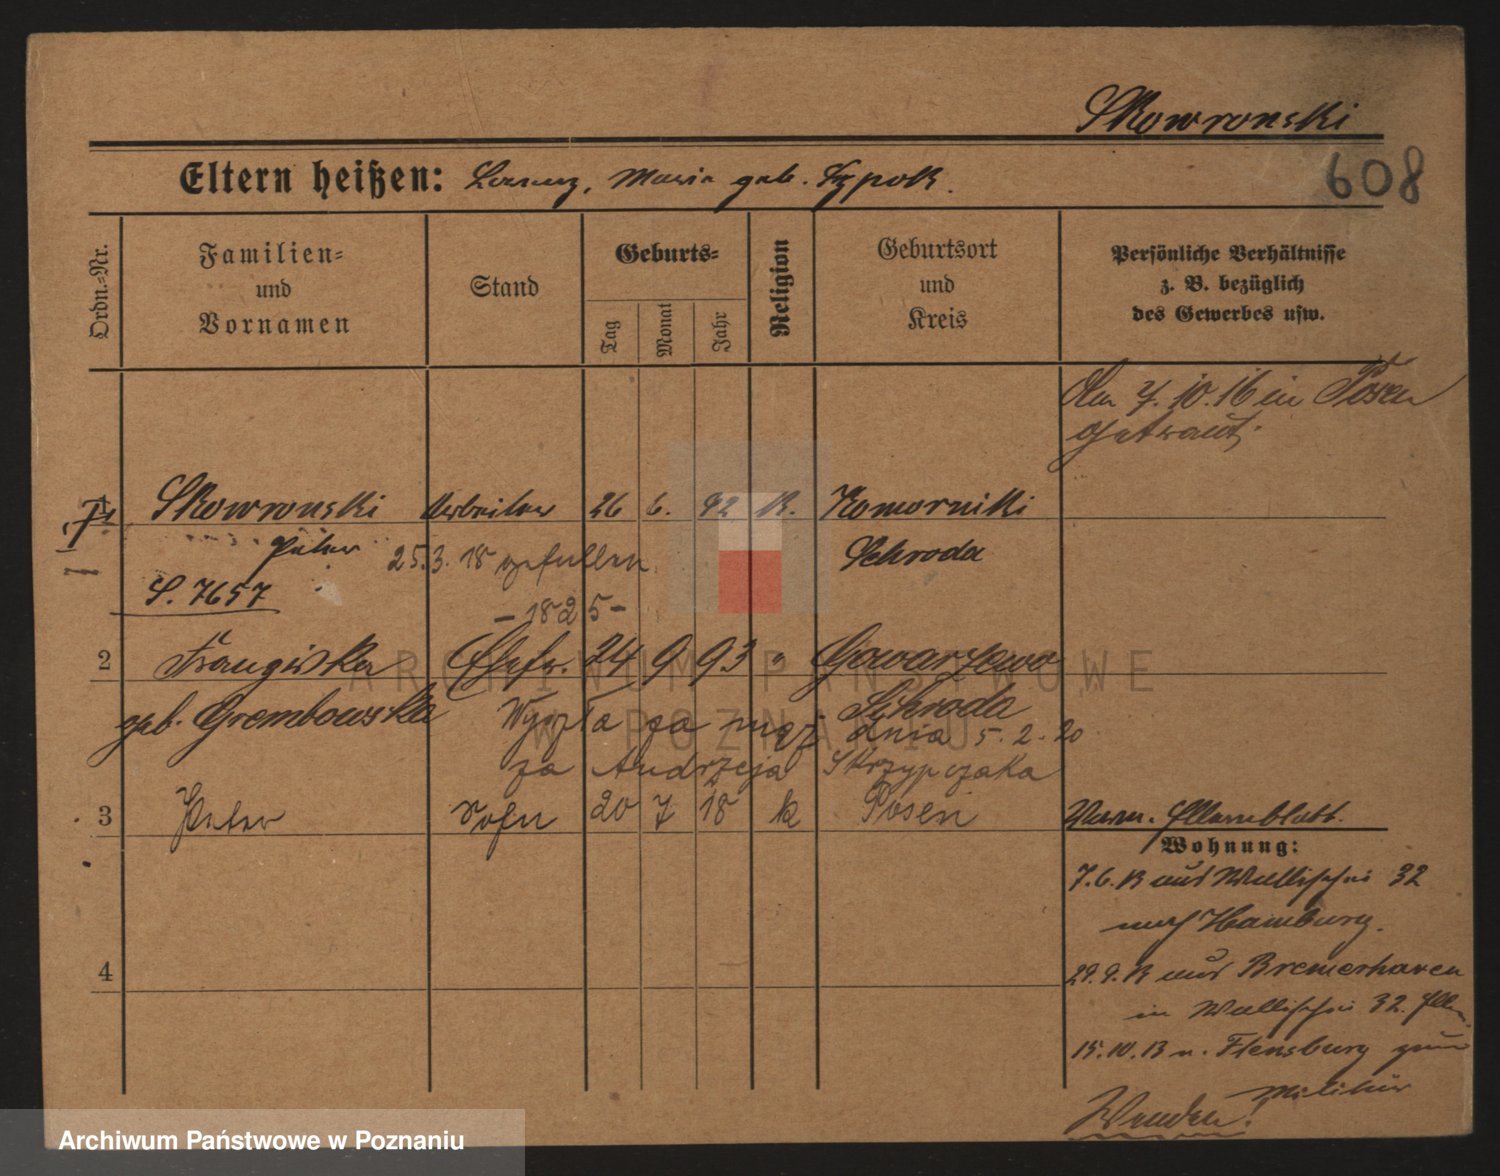 Skowronski
608
Eltern heißen: Lorenz, Maria geb.
Ordn.-Nr.
Familien- und Vornamen
Stand
Geburts-
Tag
Monat
Jahr
Religion
Geburtsort und Kreis
Persönliche Verhältnisse
z. B. bezüglich
des Gewerbes usw.
Am 7.10.16 in Posen
getraut.
1 Skowronski Arbeiter 26 6. 92 K. Komorniki
Peter 25.3.18 gefallen Schroda
S. 7657
- 1825 -
2 Franziska Ehefr. 24 9 93 " Gowarzewo
geb. Grembowska Schroda
Wyszła za mąż dnia 5.2.20
za Andrzeja Skrzypczaka
3 Peter Sohn 20 7 18 k Posen
Verm. Elternblatt.
Wohnung:
7.6.13 aus Wallischei 32
nach Hamburg.
29.9.13 aus Bremerhaven
in Wallischei 32.
4
15.10.13 n. Flensburg zum
Militär
Wenden!
ARCHIWUM PAŃSTWOWE
W POZNANIU
Archiwum Państwowe w Poznaniu